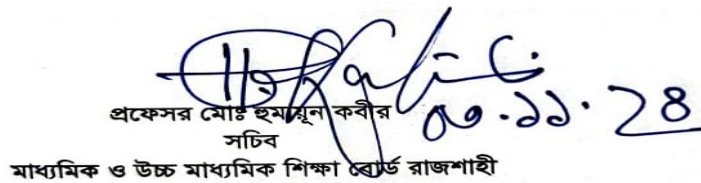 প্রফেসর মোঃ হুমায়ূন কবীর
সচিব
মাধ্যমিক ও উচ্চ মাধ্যমিক শিক্ষা বোর্ড রাজশাহী